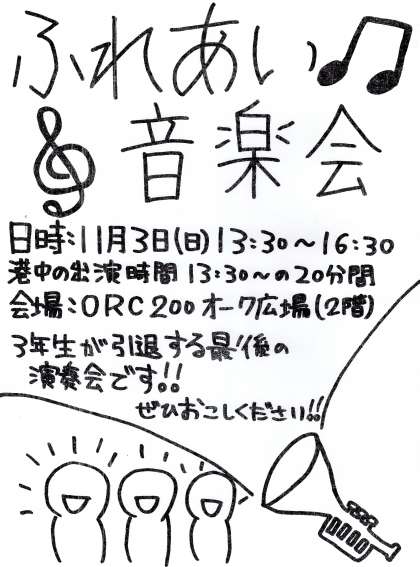 ふれあい
音楽会
日時:11月3日(日)13:30～16:30
港中の出演時間 13:30～の20分間
会場:ORC200 オーク広場(2階)
3年生が引退する最後の
演奏会です!!
ぜひおこしください!!